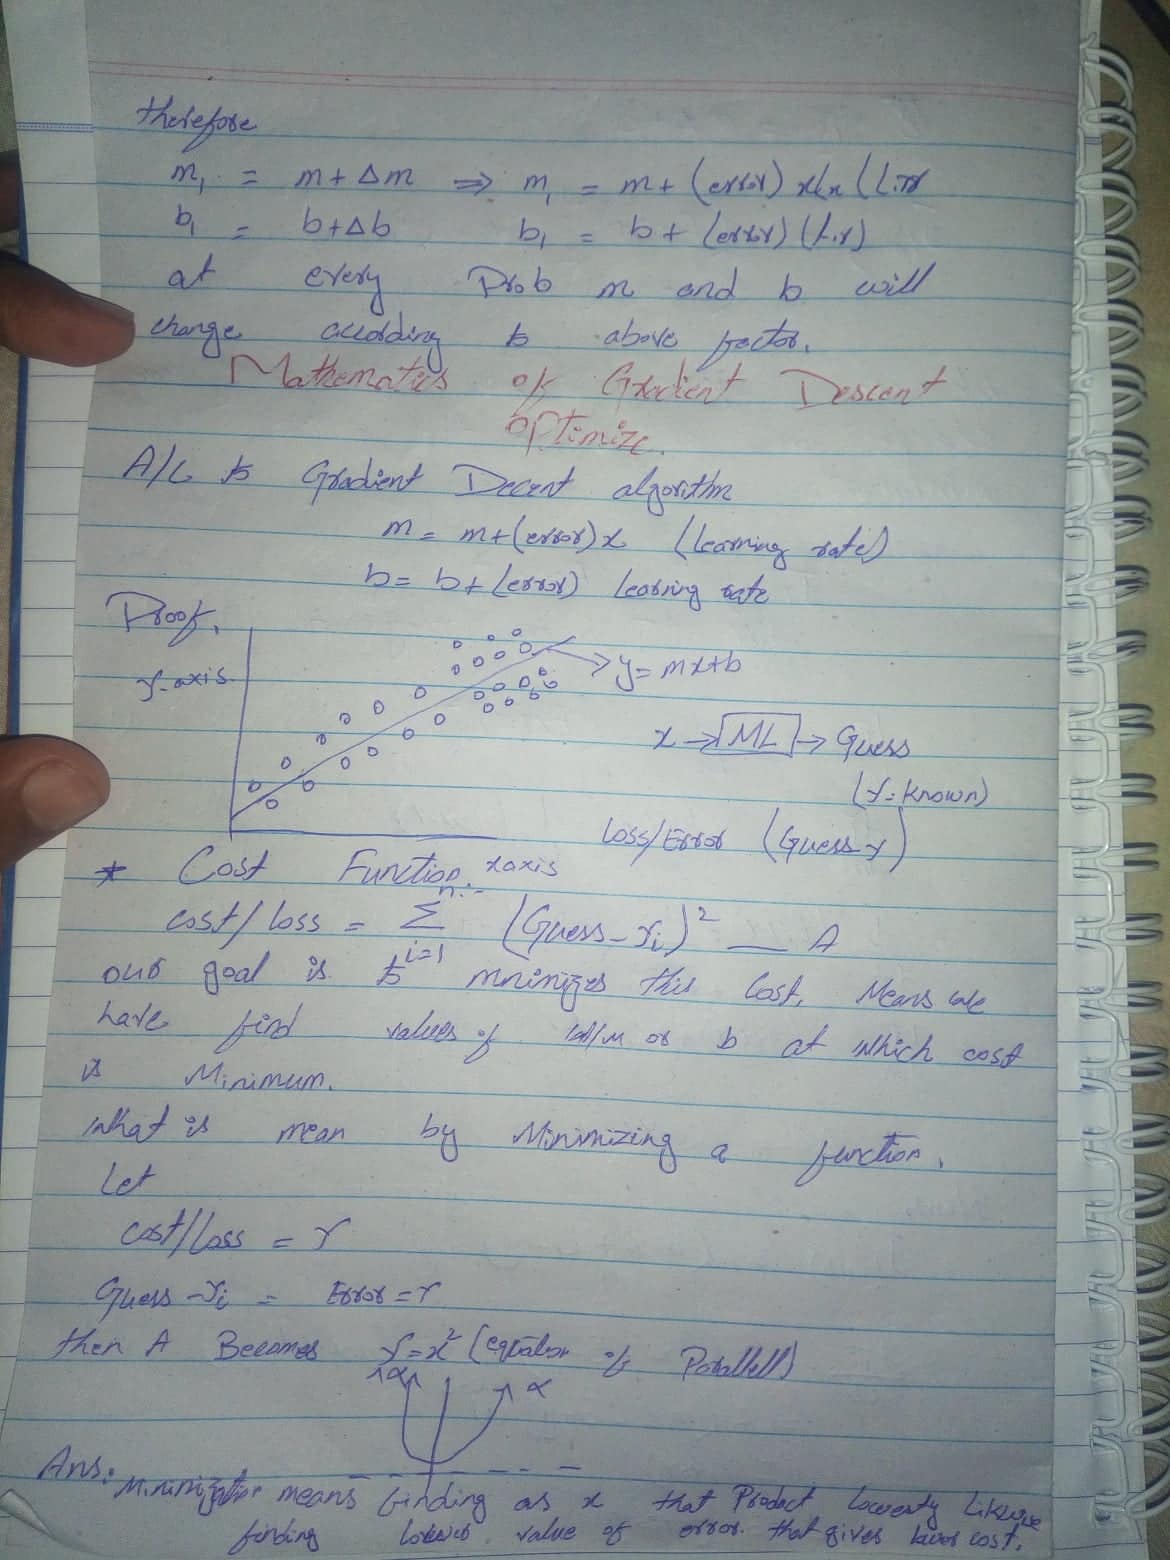 therefore
m₁ = m + Δm ⇒ m₁ = m + (error) x (L.r
b₁ = b + Δb b₁ = b + (error) (L.r)
at every Prob m and b will
change according to above factor.
Mathematics of Gradient Descent
optimize.
A/C to Gradient Decent algorithm
m = m + (error) x (learning rate)
b = b + (error) learning rate
Proof,
y-axis
y = mx+b
x → ML → Guess
(Y: known)
Loss/Error (Guess-Y)
xaxis
* Cost Function.
n
cost/loss = Σ (Guess - Yi)² — A
i=1
our goal is to mninizes this Cost. Means we
have find values of m or b at which cost
is Minimum.
what is mean by Minimizing a function.
Let
cost/Loss = Y
Guess - Yi = Error = r
then A Becomes Y = x² (equation of Parallell)
α α
Ans: Minimization means finding as x that Product Likewise
finding value of error that gives lower cost.